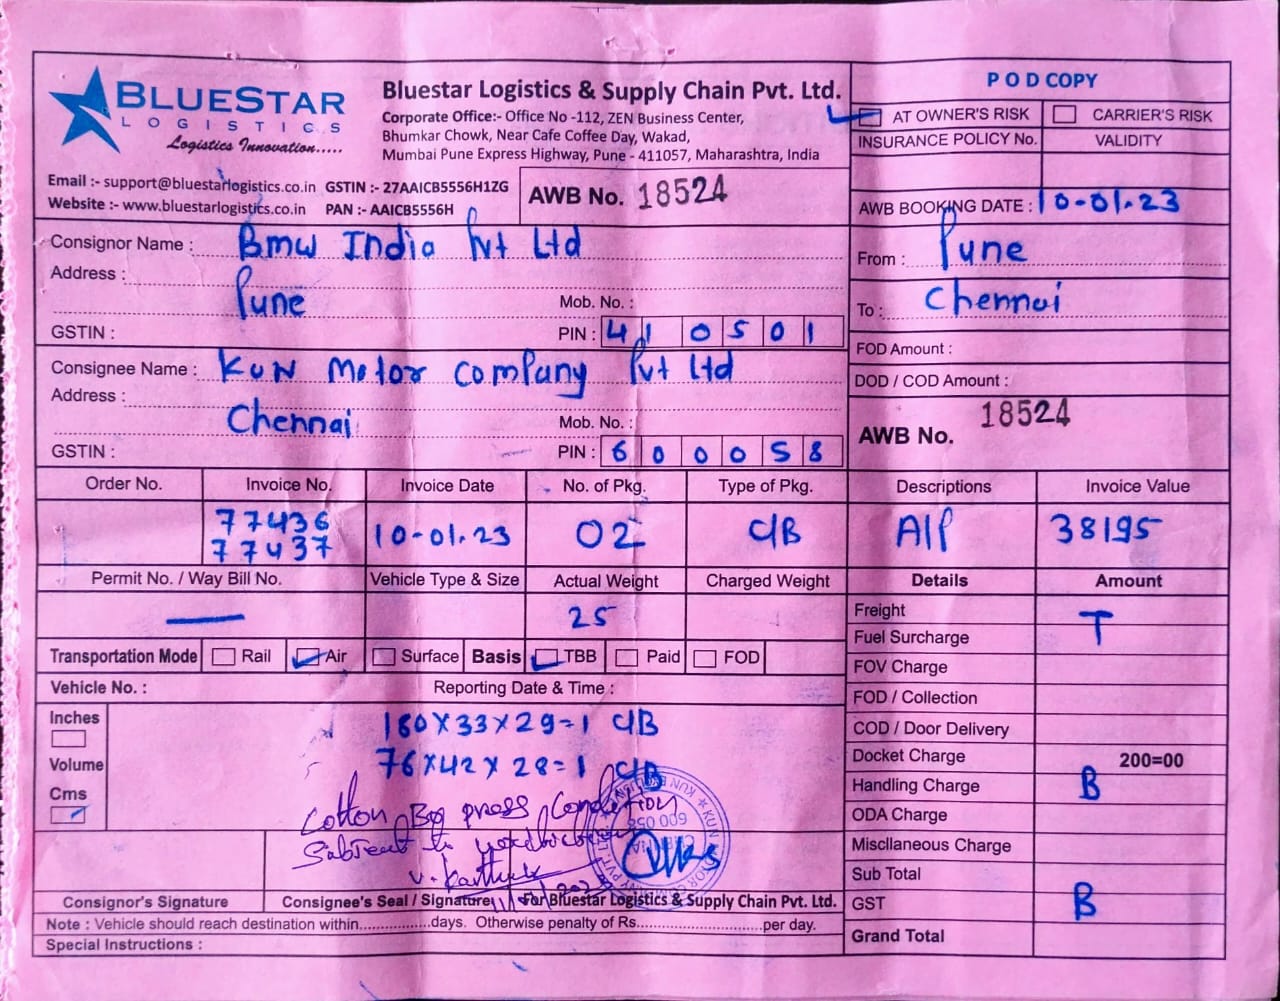 BLUESTAR
LOGISTICS
Logistics Innovation.....
Bluestar Logistics & Supply Chain Pvt. Ltd.
Corporate Office:- Office No -112, ZEN Business Center,
Bhumkar Chowk, Near Cafe Coffee Day, Wakad,
Mumbai Pune Express Highway, Pune - 411057, Maharashtra, India
POD COPY
AT OWNER'S RISK CARRIER'S RISK
INSURANCE POLICY No. VALIDITY
Email :- support@bluestarlogistics.co.in GSTIN :- 27AAICB5556H1ZG
Website :- www.bluestarlogistics.co.in PAN :- AAICB5556H
AWB No. 18524
AWB BOOKING DATE : 10-01.23
Consignor Name : Bmw India Pvt Ltd
Address :
Pune
Mob. No. :
GSTIN : PIN : 410501
From : Pune
To : Chennai
Consignee Name : KUN Motor Company Pvt Ltd
Address :
Chennai
Mob. No. :
GSTIN : PIN : 600058
FOD Amount :
DOD / COD Amount :
AWB No. 18524
Order No. Invoice No. Invoice Date No. of Pkg. Type of Pkg. Descriptions Invoice Value
77436
77437 10-01.23 02 C/B A/P 38195
Permit No. / Way Bill No. Vehicle Type & Size Actual Weight Charged Weight Details Amount
— 25
Freight T
Fuel Surcharge
Transportation Mode Rail Air Surface Basis TBB Paid FOD
FOV Charge
Vehicle No. : Reporting Date & Time :
FOD / Collection
COD / Door Delivery
Docket Charge 200=00
Handling Charge B
ODA Charge
Miscllaneous Charge
Sub Total
GST B
Grand Total
Inches
Volume
Cms
160X33X29=1 C/B
76X42X28=1 C/B
Cotton Bog press Condition
V. Karthik
Consignor's Signature Consignee's Seal / Signature For Bluestar Logistics & Supply Chain Pvt. Ltd.
Note : Vehicle should reach destination within.................days. Otherwise penalty of Rs..............................per day.
Special Instructions :